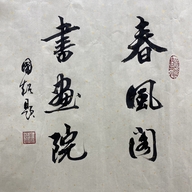 春風閣
書畫院
國超題